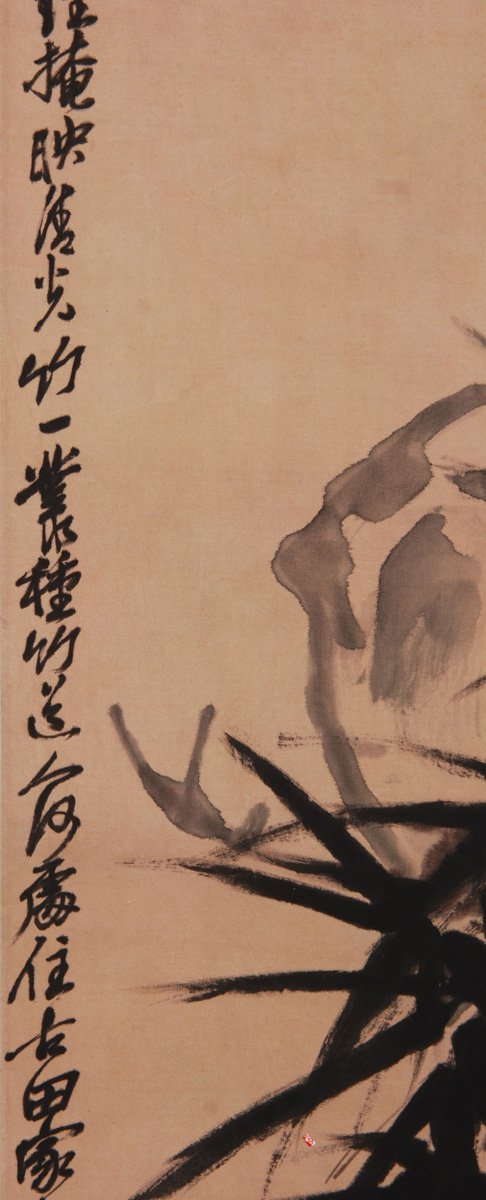 掩映清光竹一叢種竹道人何處住古田家